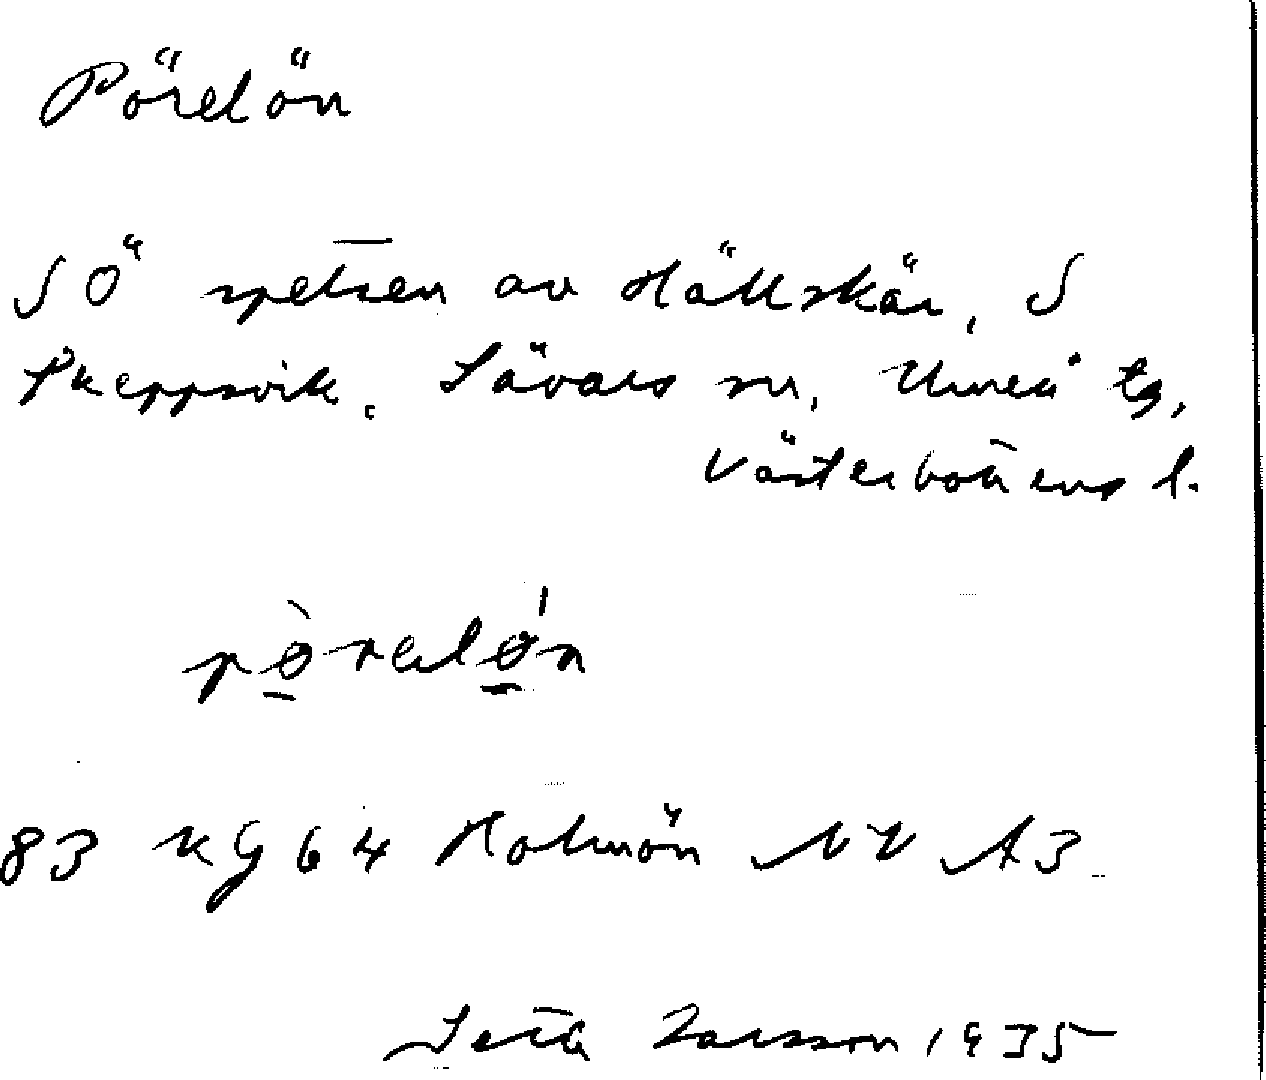 Pörelön
SÖ spetsen av Hällskär, S
Skeppsvik. Sävars sn, Umeå tg,
Västerbottens l.
pø̀relǿn
83 KG 64 Holmön NV A3
Larsson 1935